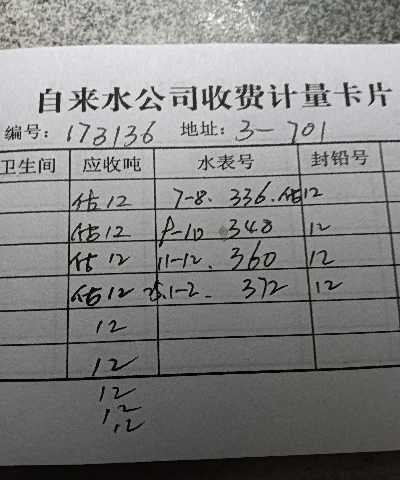 自来水公司收费计量卡片
编号: 173136 地址: 3-701
卫生间 应收吨 水表号 封铅号
估12 7-8. 336. 估12
估12 9-10 348 12
估12 11-12. 360 12
估12 25.1-2. 372 12
12
12
12
12
12